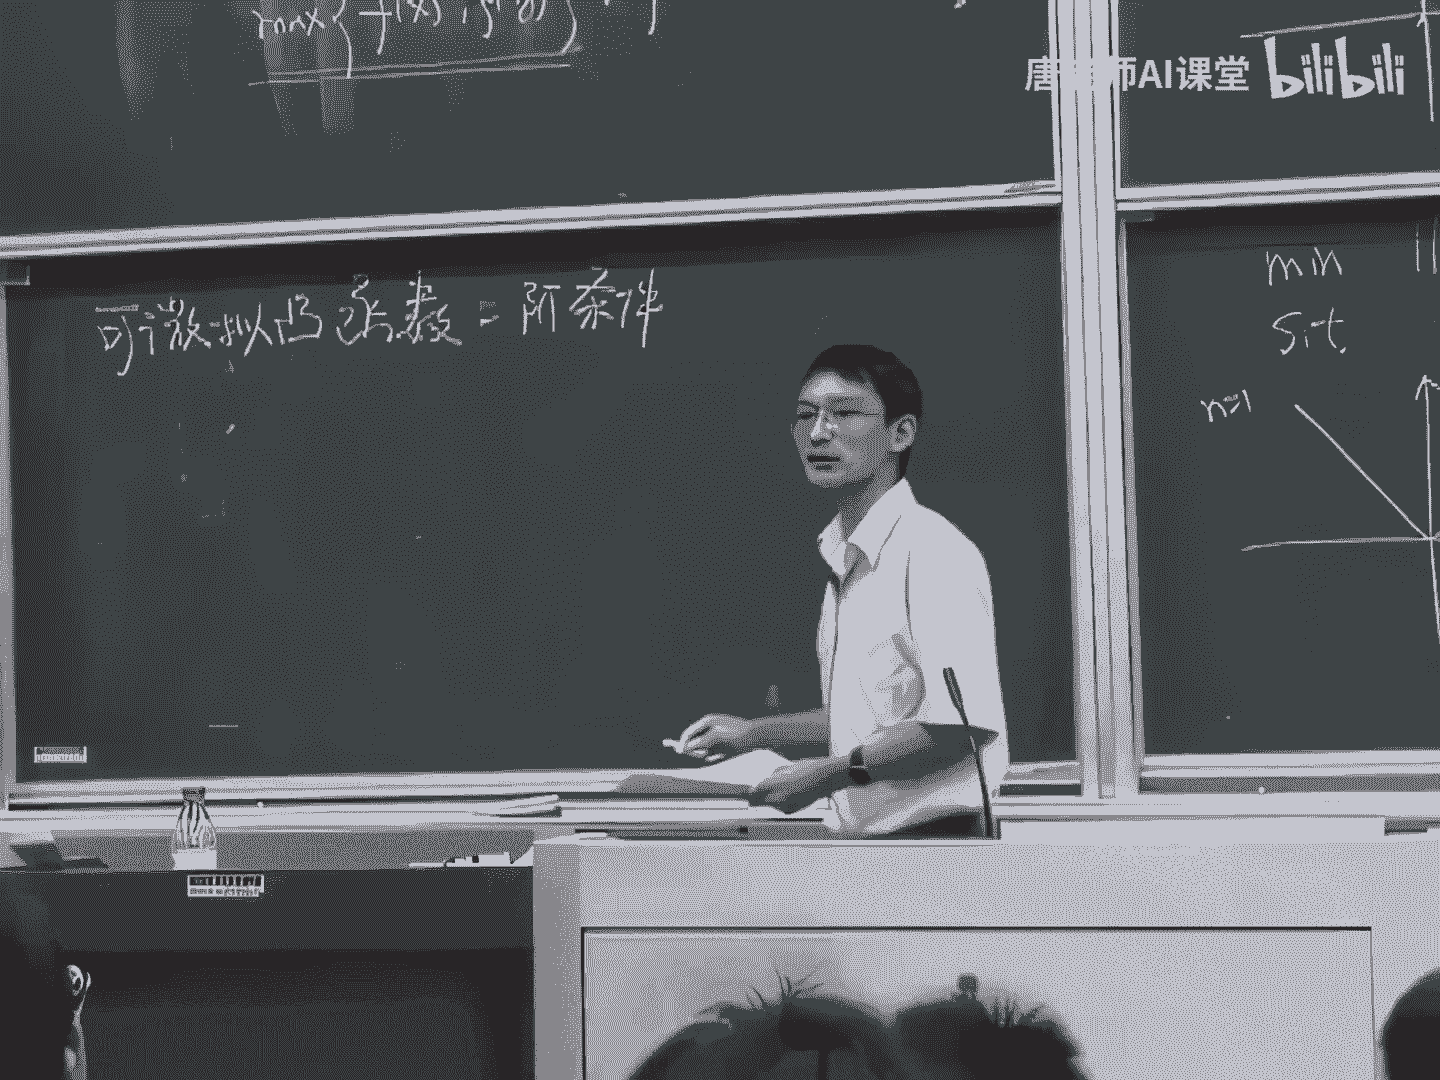 max{f(x), g(y)}
唐 师AI课堂 bilibili
可微拟凸函数二阶条件
min ||
s.t.
n=1